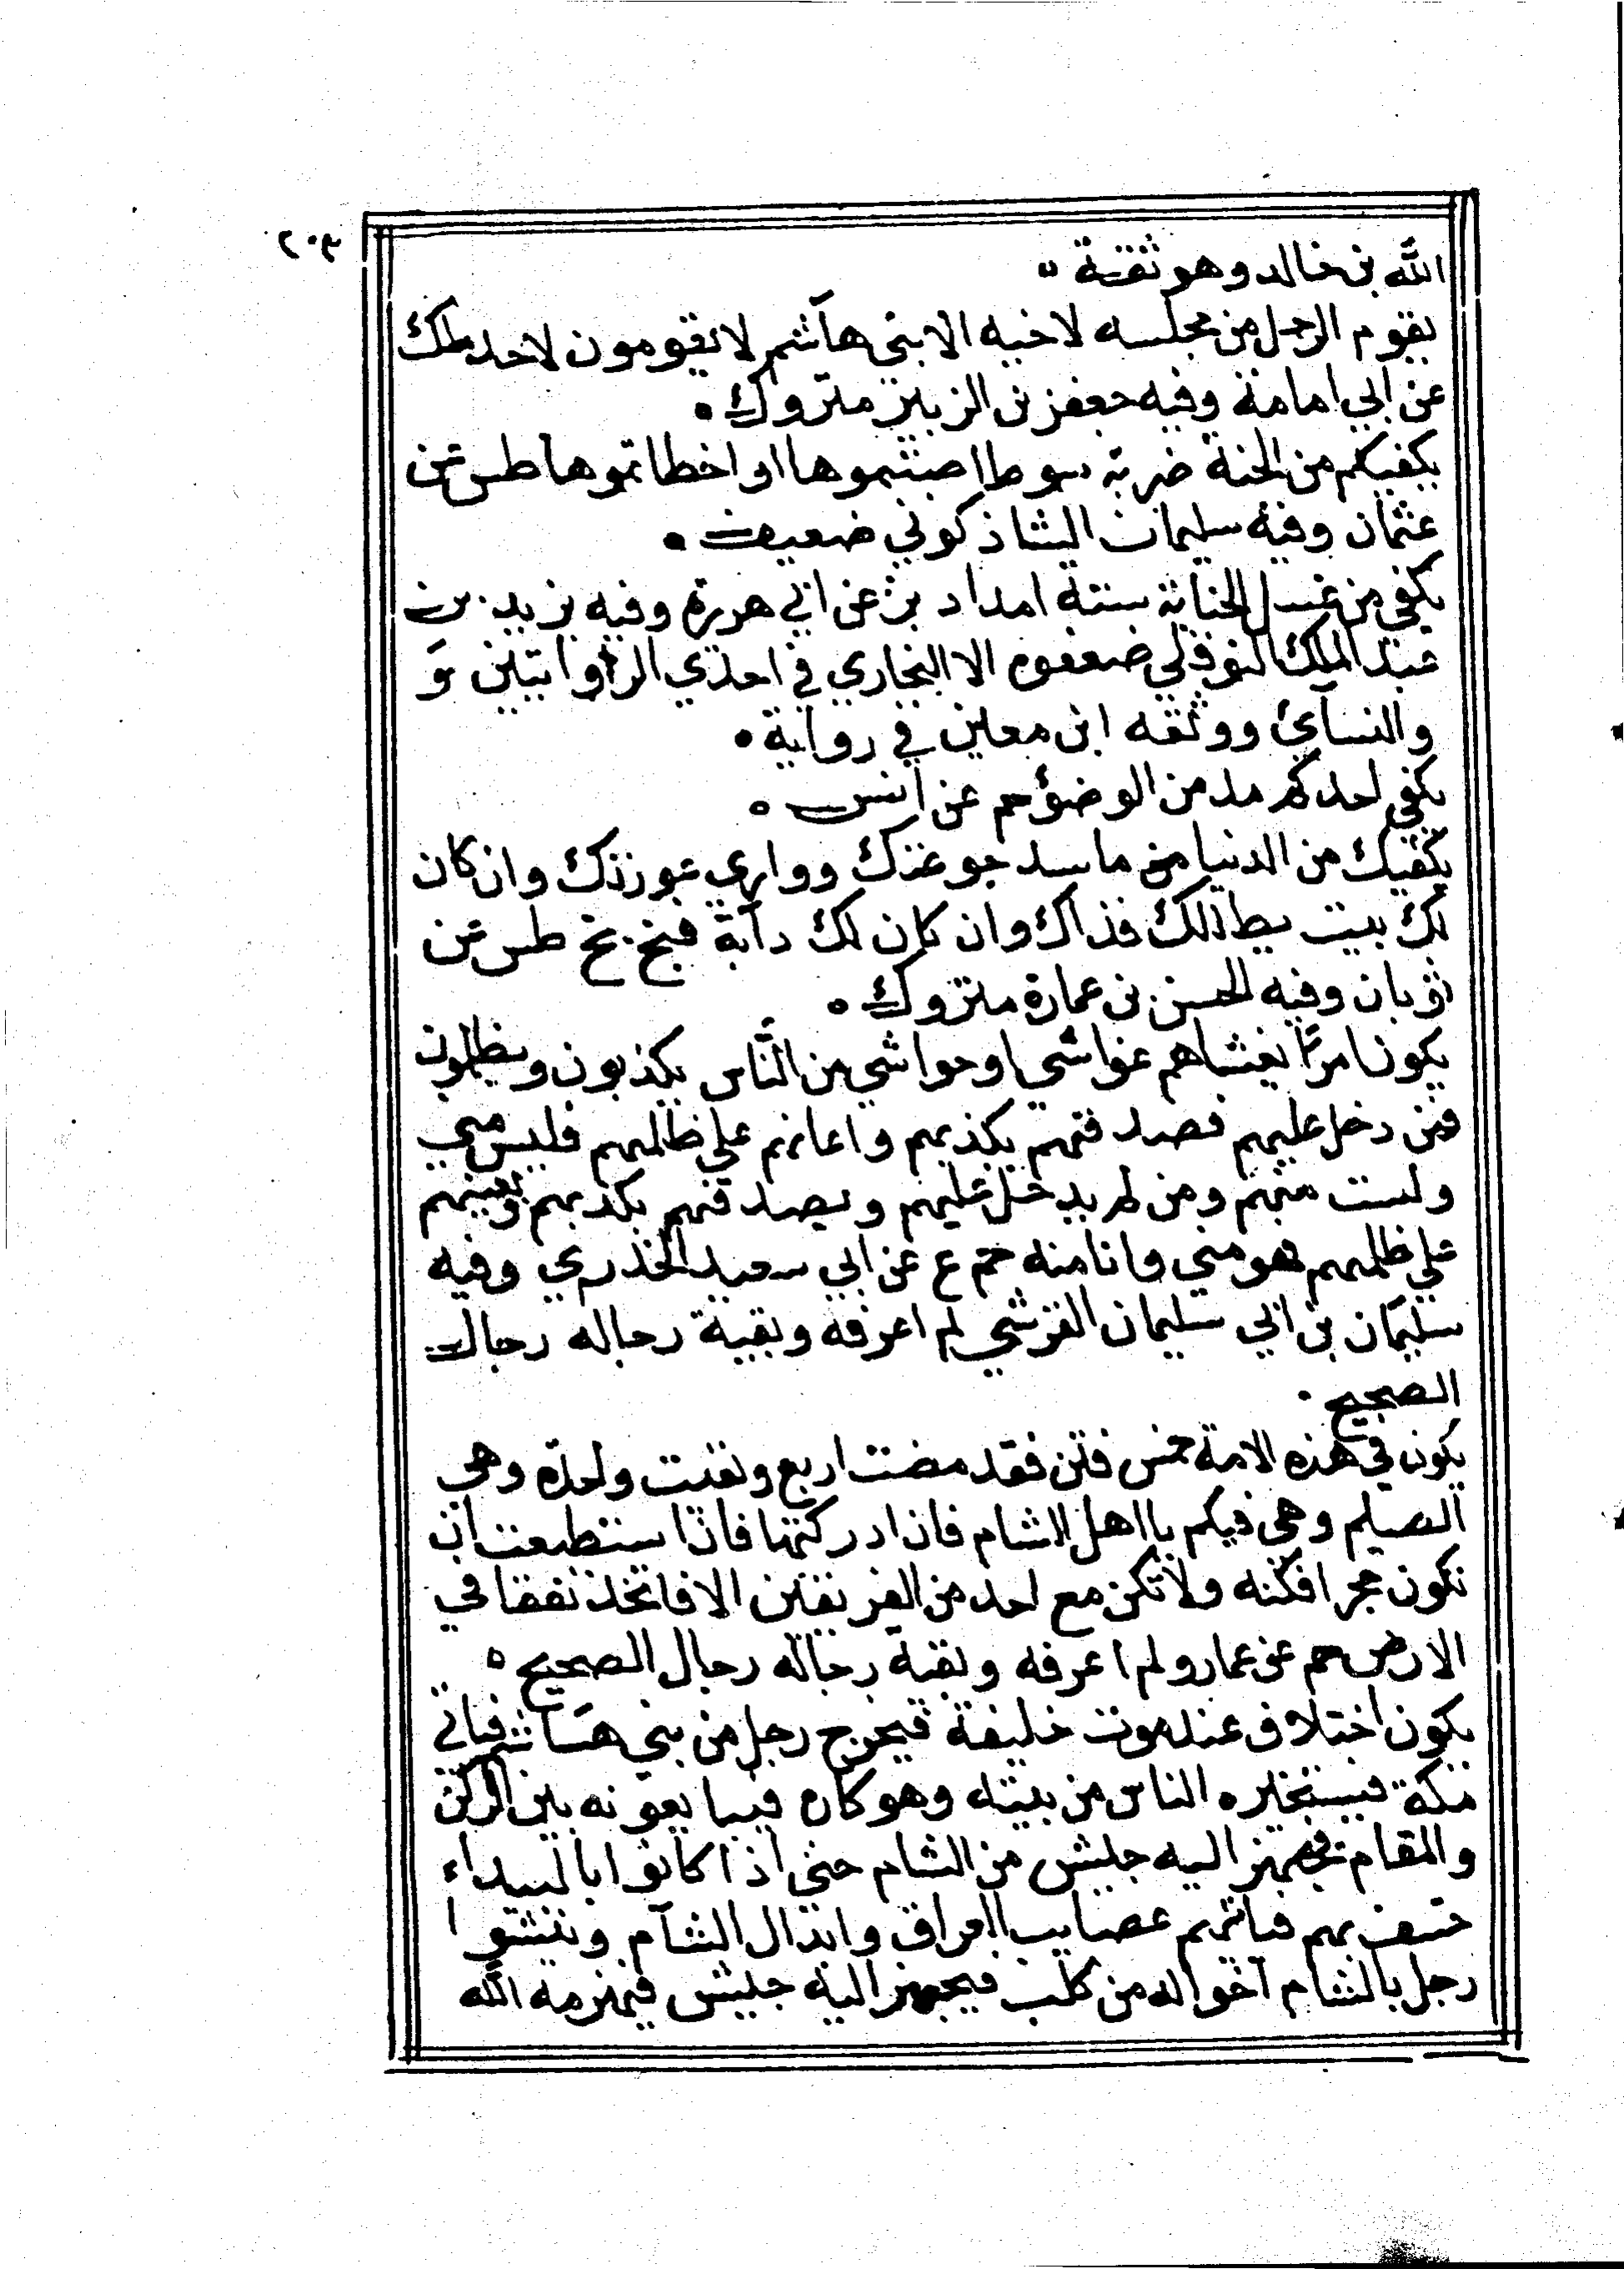 ٢٠٣
الله بن خالد وهو ثقة
يقوم الرجل من مجلسه لاخيه الا بني هاشم لا يقومون لاحد طك
عن ابي امامة وفيه جعفر بن الزبير متروك
يكفيكم من الجنة ضربة سوط اصبتموها او اخطاتموها طس عن
عثمان وفيه سليمان الشاذكوني ضعيف
يكفي من غسل الجنابة ستة امداد بز عن ابي هريرة وفيه يزيد بن
عبد الملك النوفلي ضعفوه الا البخاري في احدي الراوايتين و
والنسائي ووثقه ابن معين في رواية
يكفي احدكم مد من الوضوء حم عن انس
يكفيك من الدنيا من ما سد جوعتك وواري عورتك وان كان
لك بيت يظلك فذاك وان كان لك دابة فبخ بخ طس عن
ثوبان وفيه الحسن بن عمارة متروك
يكون امرآ يغشاهم غواشي او حواشي من الناس يكذبون ويظلمون
فمن دخل عليهم فصدقهم بكذبهم واعانهم علي ظلمهم فليس مني
ولست منهم ومن لم يدخل عليهم ويصدقهم بكذبهم ويعينهم
علي ظلمهم فهو مني وانا منه حم ع عن ابي سعيد الخدري وفيه
سليمان بن ابي سليمان القرشي لم اعرفه وبقية رجاله رجال
الصحيح
يكون في هذه الامة خمس فتن فقد مضت اربع وبقيت واحدة وهي
الصيلم وهي فيكم يا اهل الشام فان ادركتها فان استطعت ان
تكون حجرا فكنه ولا تكن مع احد من الفريقين الا فاتخذ نفقا في
الارض حم عن عمار ولم اعرفه وبقية رجاله رجال الصحيح
يكون اختلاف عند موت خليفة فيخرج رجل من بني هاشم فياتي
مكة فيستخيره الناس من بيته وهو كاره فيبايعونه بين الركن
والمقام فيجهز اليه جيش من الشام حتي اذا كانوا بالبيداء
خسف بهم فياتيهم عصايب العراق وابدال الشام وينشوا
رجل بالشام آخواله من كلب فيجهز اليه جيش فيهزمه الله